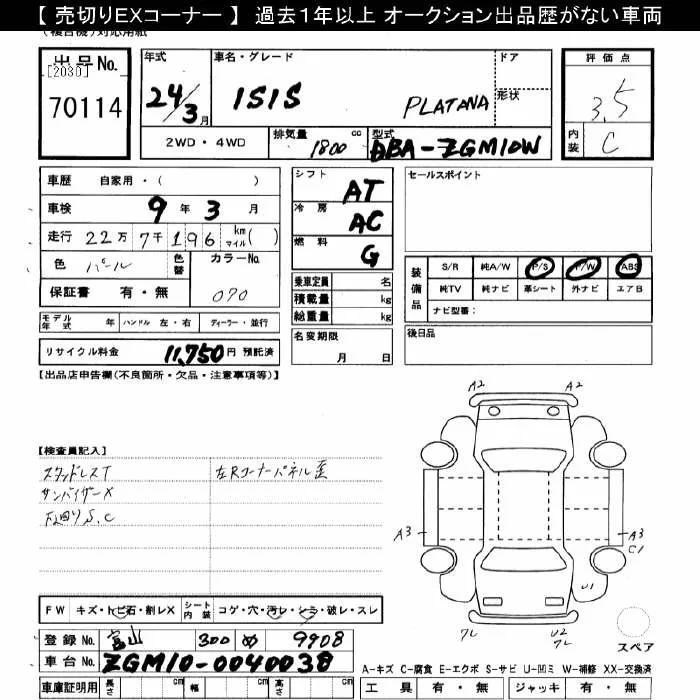 【 売切りEXコーナー 】 過去１年以上 オークション出品歴がない車両
(複合機)対応用紙
出品No.
[2030]
70114
年式
24/3月
車名・グレード
ISIS PLATANA
ドア
形状
2WD・4WD
排気量
1800 cc
型式
DBA-ZGM10W
評価点
3.5
内装
C
車歴 自家用・( )
車検 9年 3月
走行 22万 7千 196 km マイル( )
色 パール
色替
カラーNo.
070
保証書 有・無
モデル年式 年 ハンドル 左・右 ディーラー・並行
リサイクル料金 11,750円 預託済
シフト AT
冷房 AC
燃料 G
乗車定員 名
積載量 kg
総重量 kg
名変期限
月 日
セールスポイント
装備品
S/R 純A/W P/S P/W ABS
純TV 純ナビ 革シート 外ナビ エアB
ナビ型番：
後日品
【出品店申告欄(不良箇所・欠品・注意事項等)】
【検査員記入】
スタッドレスT
サンバイザーX
下廻りS.C
左Rコーナーパネル歪
A2 A2
A3 A3
C1
U1
7L U2
7L
スペア
FW キズ・トビ石・割レX
シート内装 コゲ・穴・汚レ・シミ・破レ・スレ
登録No. 富山 300 9908
車台No. ZGM10-0040038
車庫証明用 長さ cm 幅 cm 高さ cm
A-キズ C-腐食 E-エクボ S-サビ U-凹ミ W-補修 XX-交換済
工具 有・無 ジャッキ 有・無